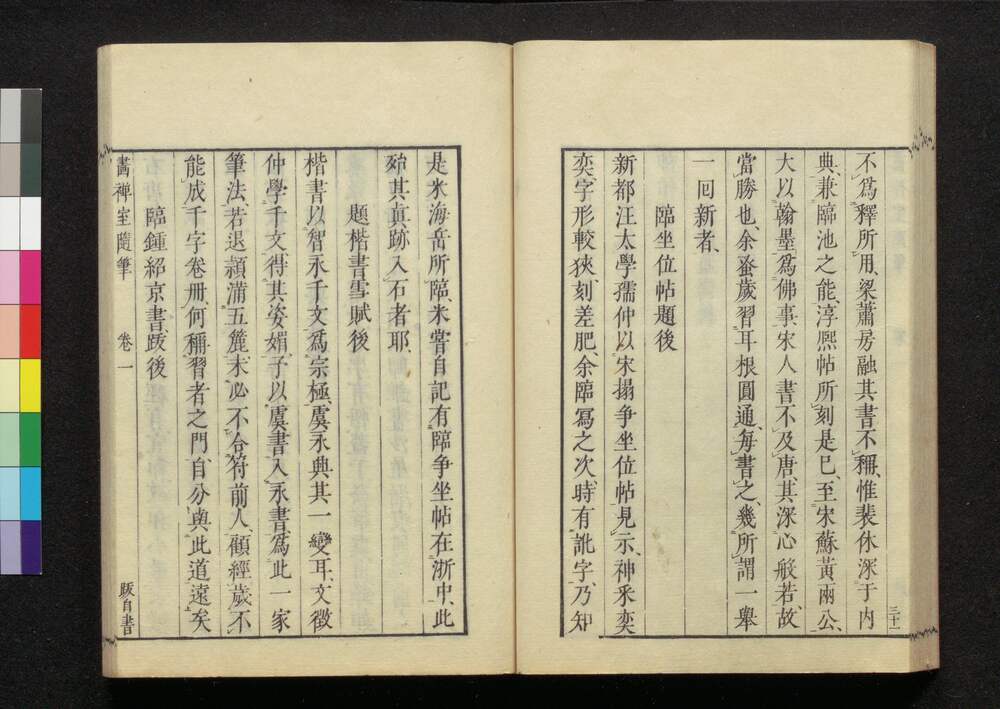 不爲釋所用、梁蕭房融其書不稱、惟裴休深于内
典、兼臨池之能、淳熈帖所刻是巳、至宋蘇黃兩公、
大以翰墨爲佛事、宋人書不及唐、其深心般若、故
當勝也、余蚤歲習耳根圓通、每書之、幾所謂一舉
一囘新者、
臨坐位帖題後
新都汪太學孺仲以宋搨爭坐位帖見示、神釆奕
奕、字形較狹、刻差肥、余臨寫之次、時有訛字、乃知
三十一
是米海岳所臨、米嘗自記有臨爭坐帖在浙中、此
殆其眞跡入石者耶、
題楷書雪賦後
楷書以智永千文爲宗極、虞永興其一變耳、文徵
仲學千文、得其姿媚、予以虞書入永書、爲此一家
筆法、若退頴滿五簏、未必不合符前人、顧經歲不
能成千字卷册、何稱習者之門、自分與此道遠矣
臨鍾紹京書跋後
畫禅室隨筆
卷一
跋自書